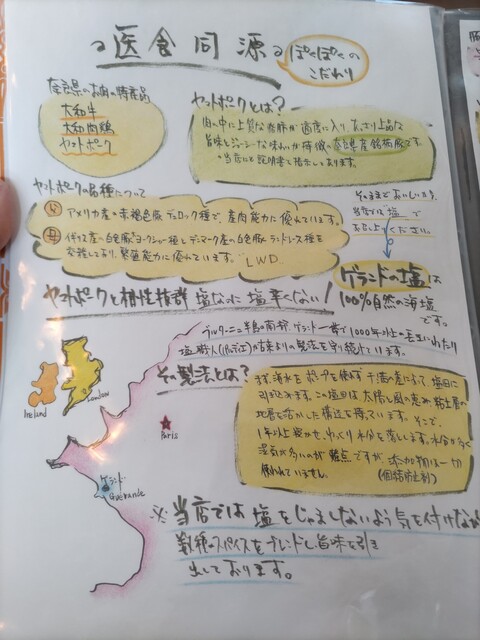 医食同源
ぽくぽくの
こだわり
奈良県のお肉の特産品
大和牛
大和肉鶏
ヤマトポーク
ヤマトポークとは?
肉の中に上質な脂肪が適度に入り、あっさり上品な
旨味とジューシーな味わいが特徴の奈良県産銘柄豚です。
・当店にも説明書を掲示しております。
ヤマトポークの品種について
父 アメリカ産の赤褐色豚デュロック種で、産肉能力に優れています。
母 イギリス産の白色豚ヨークシャー種とデンマーク産の白色豚ランドレース種を
交雑しており、繁殖能力に優れています。LWD
そのままでおいしい
当店では塩で
お召し上りください。
ゲランドの塩は
100%自然の海塩
です。
ヤマトポークと相性抜群 塩なのに塩辛くない!
ブルターニュ半島の南部、ゲランド一帯で1000年以上の長きにわたり
塩職人(パリュディエ)が古来よりの製法を守り続けています。
その製法とは?
まず海水をポンプを使わず干満の差により、塩田に
引き込みます。この塩田は太陽と風の恵み、粘土層の
地層を活かした構造を持っています。そこで、
1年以上寝かせ、ゆっくり水分を蒸します。水分が多く
湿気が多いのが難点ですが、添加物は一切
使われていません。
(固結防止剤)
Ireland
London
Paris
ゲランド
Guérande
※当店では塩をじゃましないよう気を付けなが
数種のスパイスをブレンドし、旨味を引き
出しております。